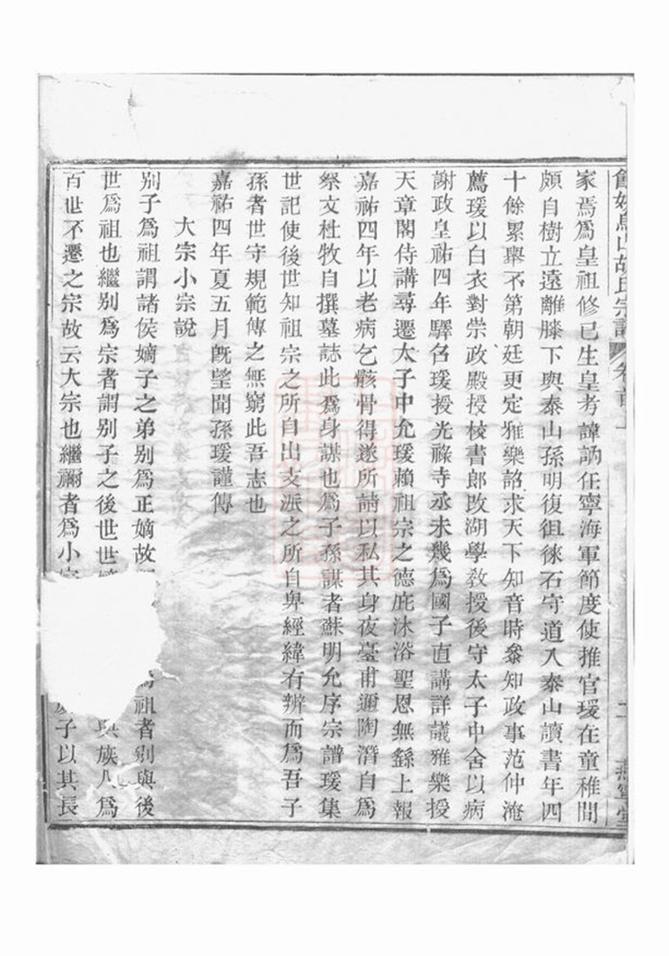 餘姚鳥山胡氏宗譜 卷首上 二
家焉爲皇祖修已生皇考諱訥任寧海軍節度使推官瑗在童稚間
頗自樹立遠離膝下與泰山孫明復徂徠石守道入泰山讀書年四
十餘累舉不第朝廷更定雅樂詔求天下知音時參知政事范仲淹
薦瑗以白衣對崇政殿授校書郎改湖學教授後守太子中舍以病
謝政皇祐四年驛名瑗授光祿寺丞未幾爲國子直講詳議雅樂授
天章閣侍講尋遷太子中允瑗賴祖宗之德庇沐浴聖恩無繇上報
嘉祐四年以老病乞骸骨得遂所請以私其身夜臺甫邇陶潛自爲
祭文杜牧自撰墓誌此爲身謀也爲子孫謀者蘇明允序宗譜瑗集
世記使後世知祖宗之所自出支派之所自卑經緯有辨而爲吾子
孫者世守規範傳之無窮此吾志也
嘉祐四年夏五月旣望聞孫瑗謹傳
大宗小宗說
別子爲祖謂諸侯嫡子之弟別爲正嫡故 爲祖者別與後
世爲祖也繼別爲宗者謂別子之後世世 與族人爲
百世不遷之宗故云大宗也繼禰者爲小宗 子以其長